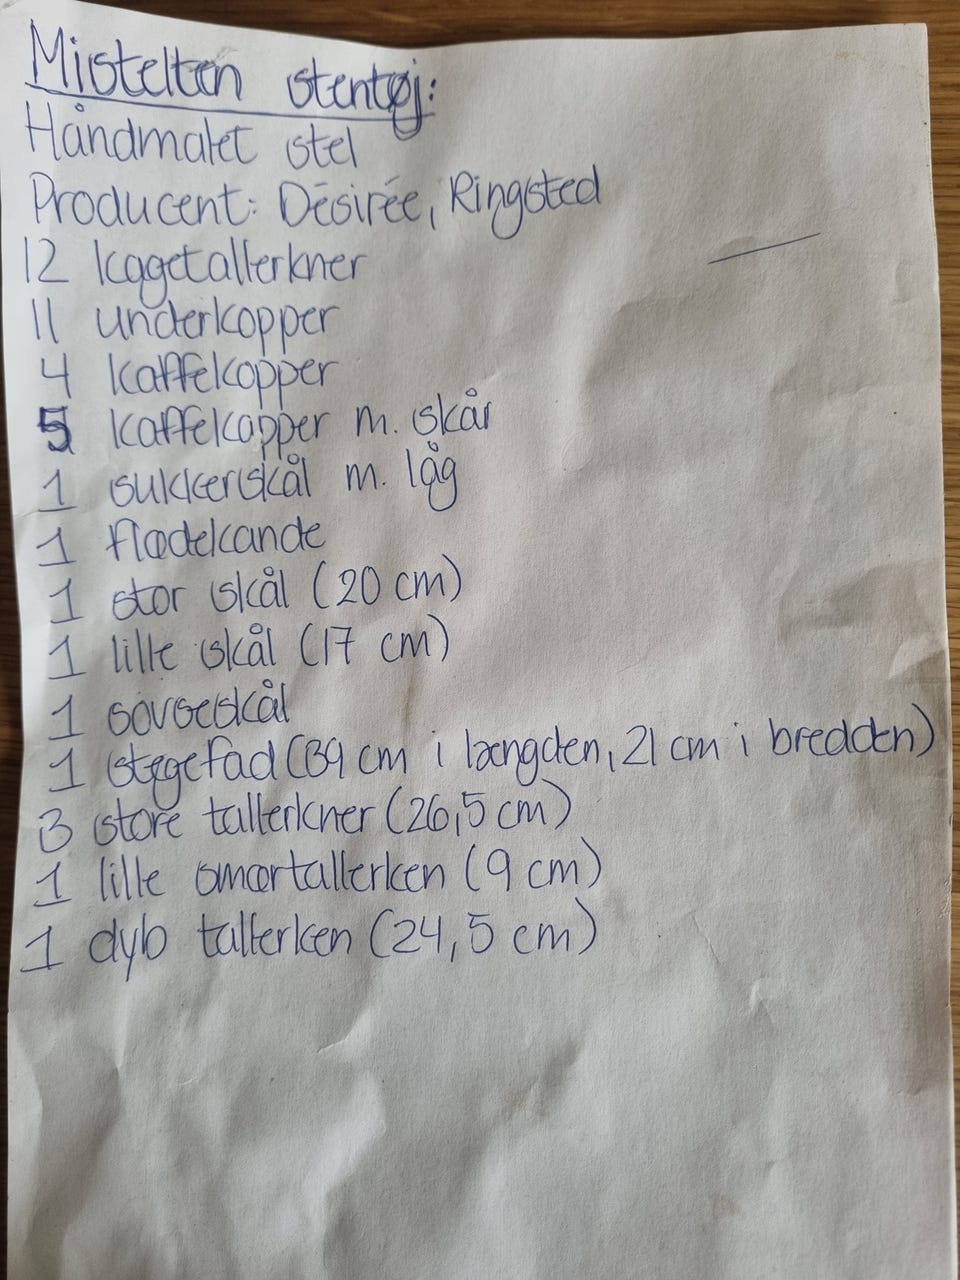 Mistelten stentøj:
Håndmalet stel
Producent: Désirée, Ringsted
12 kagetallerkner
11 underkopper
4 kaffekopper
5 kaffekopper m. skår
1 sukkerskål m. låg
1 flødekande
1 stor skål (20 cm)
1 lille skål (17 cm)
1 sovseskål
1 stegefad (39 cm i længden, 21 cm i bredden)
3 store tallerkner (26,5 cm)
1 lille smørtallerken (9 cm)
1 dyb tallerken (24,5 cm)